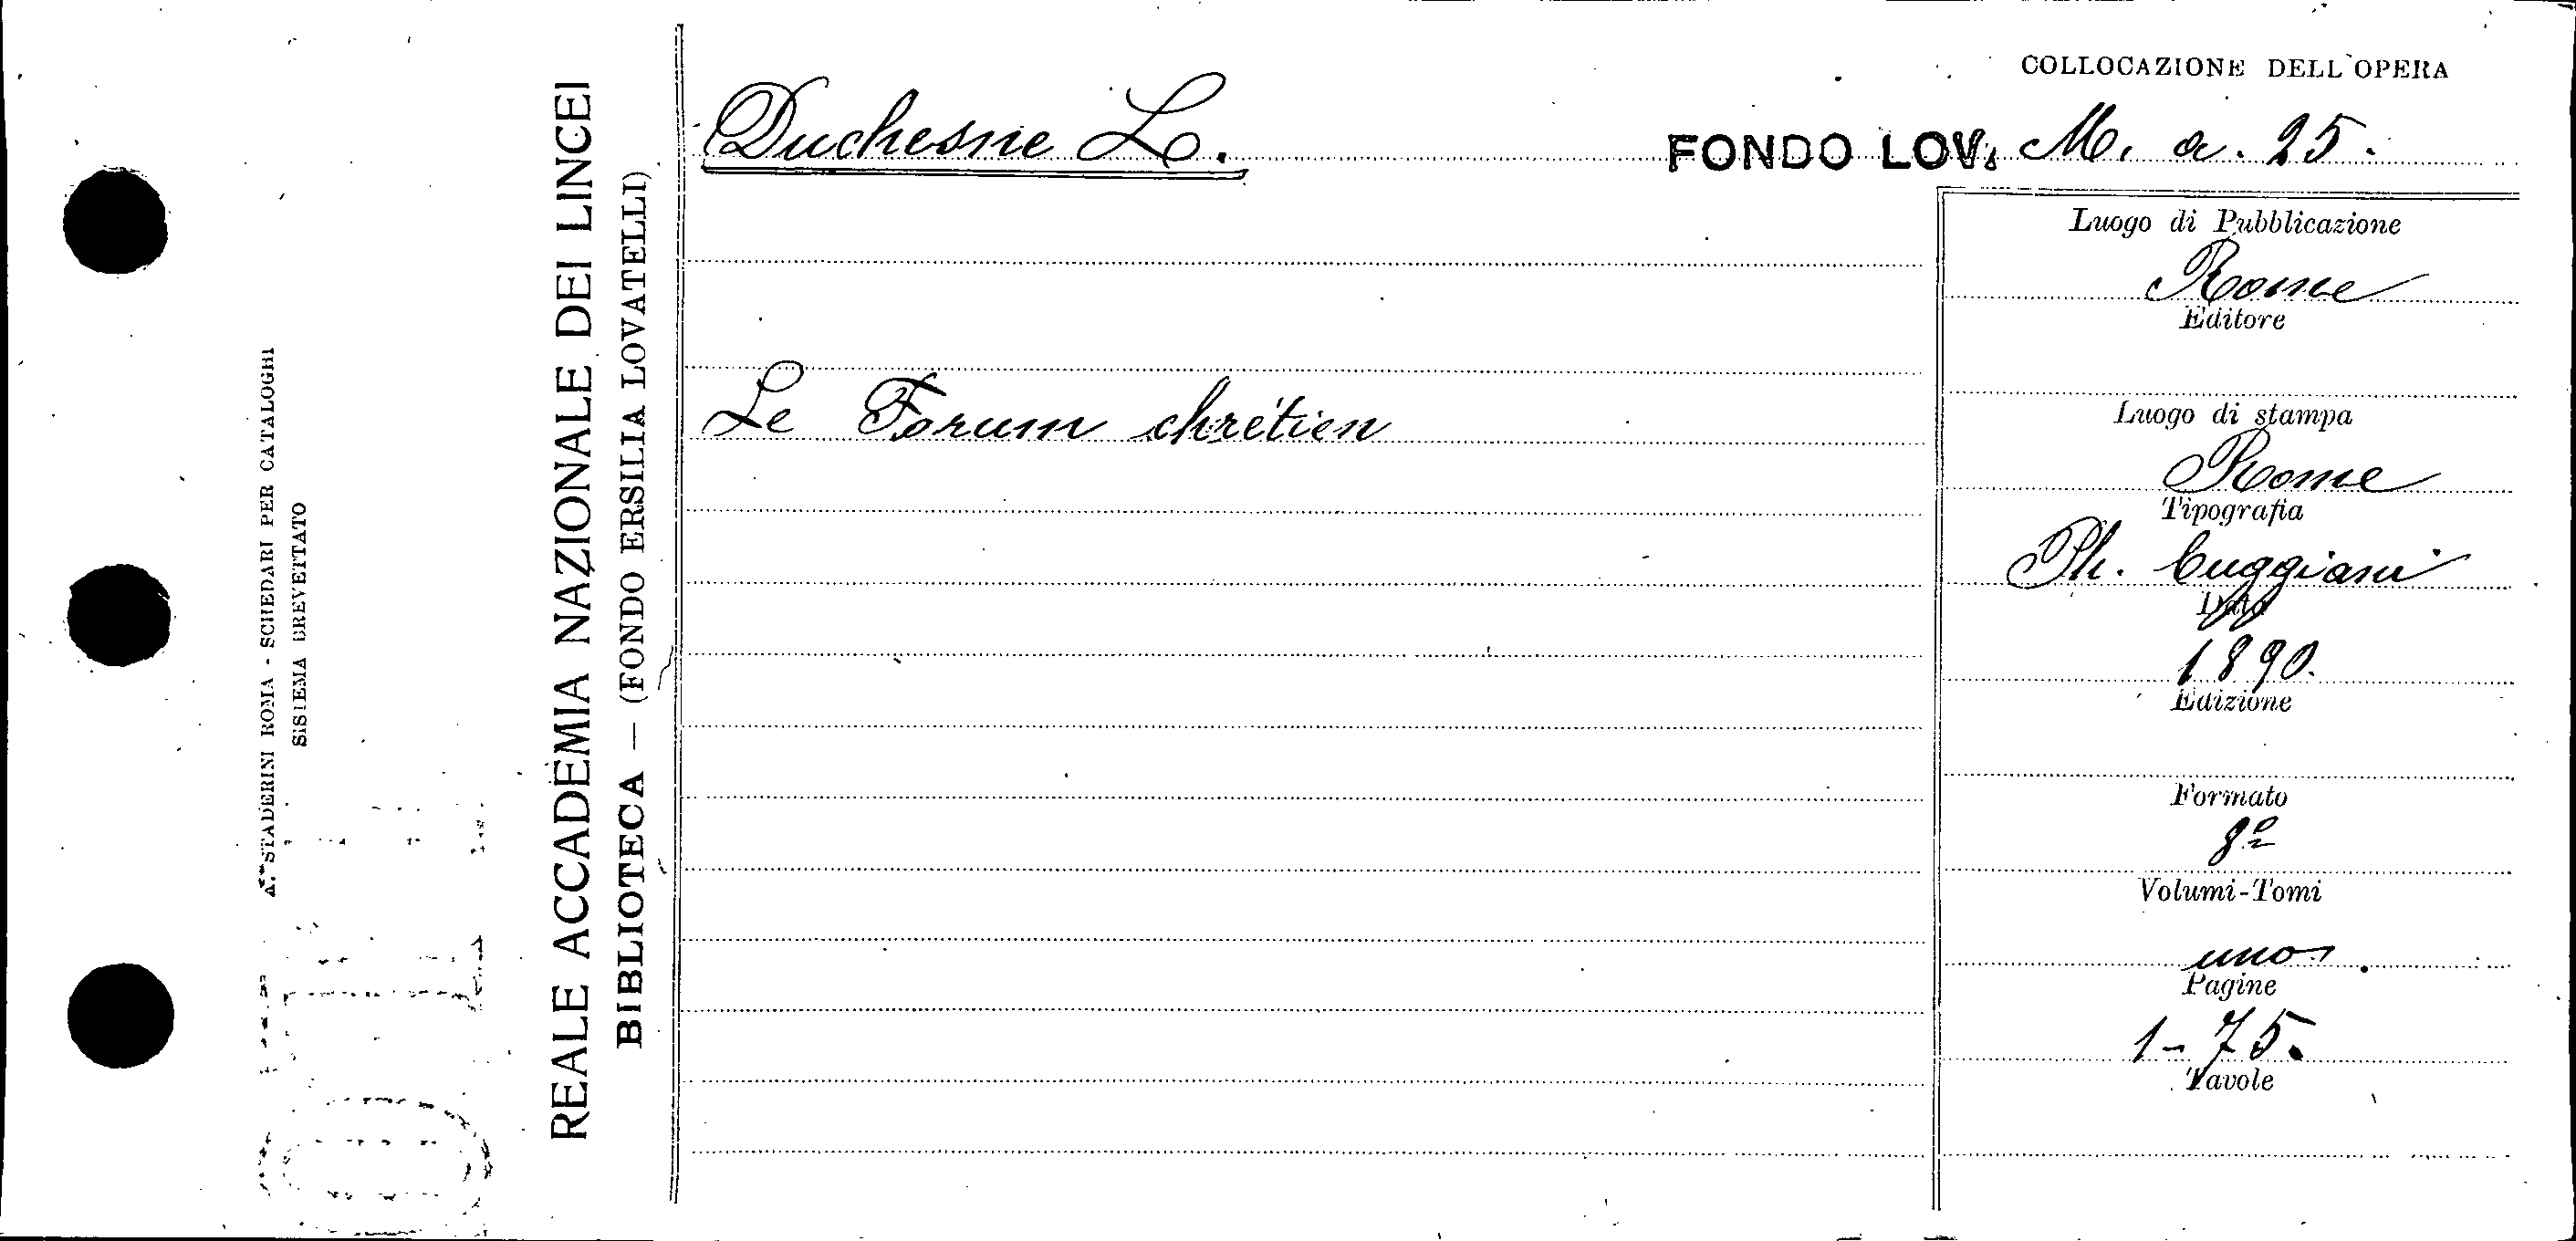 COLLOCAZIONE DELL'OPERA
Duchesne L.
FONDO LOV. M. a. 25.
Le Forum chrétien
Luogo di Pubblicazione
Rome
Editore
Luogo di stampa
Rome
Tipografia
Ph. Cuggiani
Data
1890.
Edizione
Formato
8º
Volumi-Tomi
uno.
Pagine
1-75.
Tavole
REALE ACCADEMIA NAZIONALE DEI LINCEI
BIBLIOTECA — (FONDO ERSILIA LOVATELLI)
A. STADERINI ROMA - SCHEDARI PER CATALOGHI
SISTEMA BREVETTATO